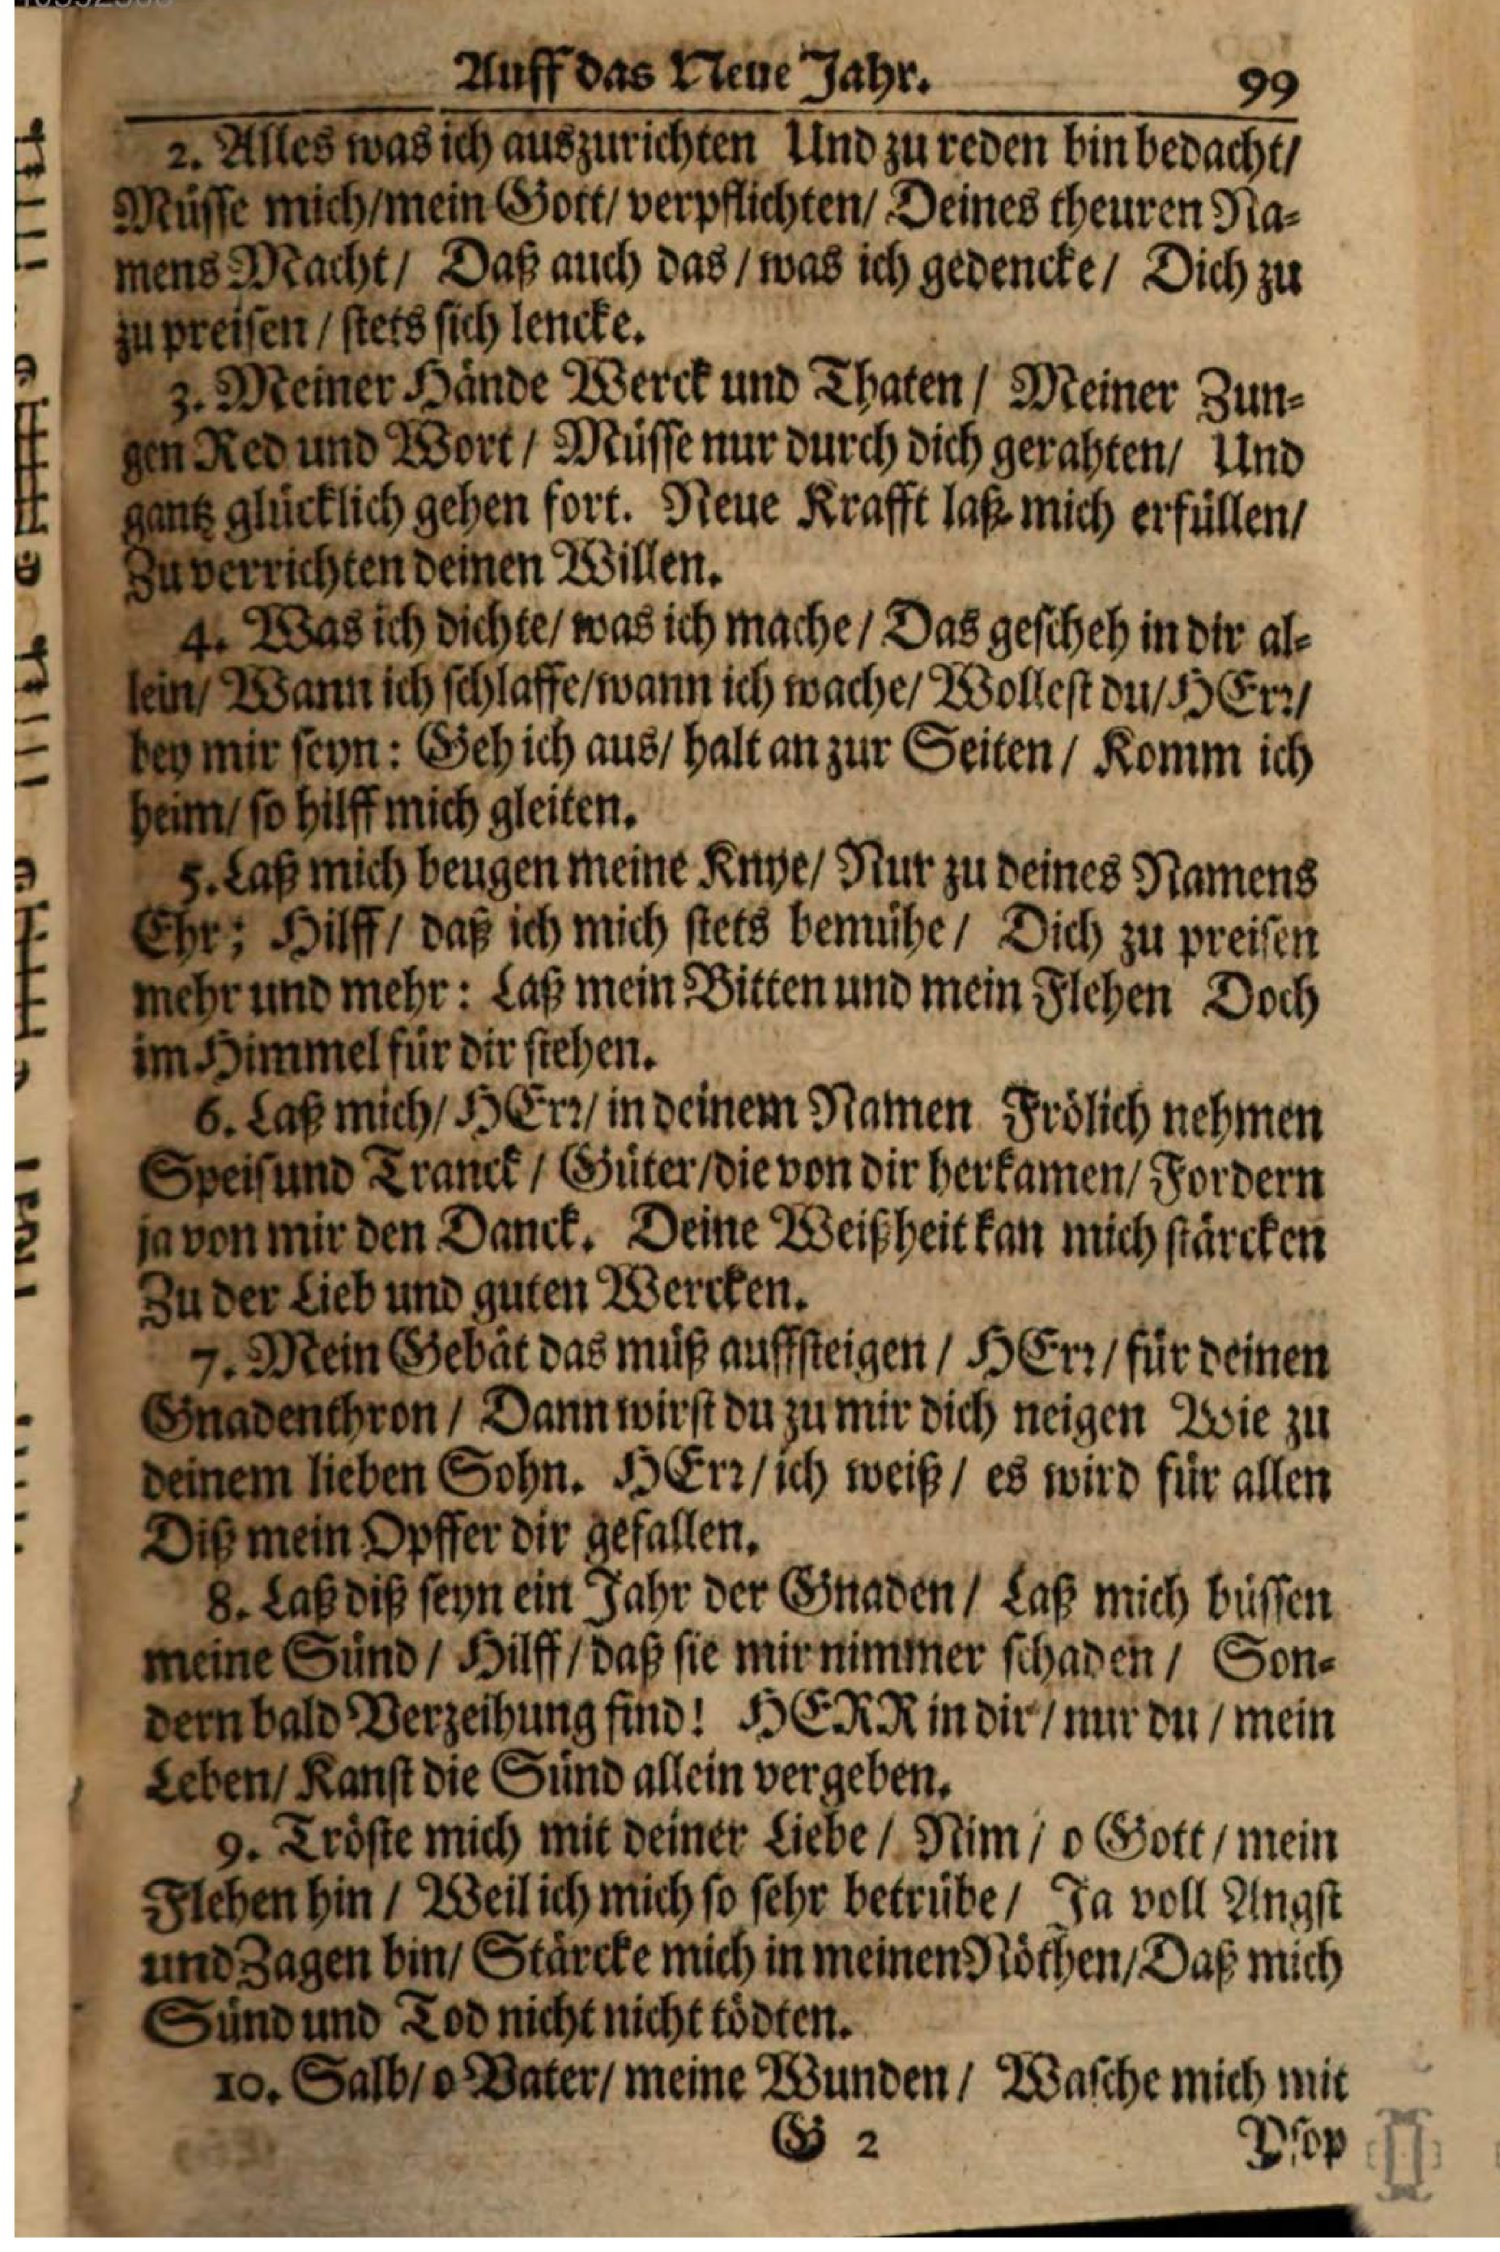 Auff das Neue Jahr. 99
2. Alles was ich auszurichten Und zu reden bin bedacht/
Müsse mich/mein Gott/ verpflichten/ Deines theuren Na-
mens Macht/ Daß auch das/was ich gedencke/ Dich zu
zu preisen/ stets sich lencke.
3. Meiner Hände Werck und Thaten/ Meiner Zun-
gen Red und Wort/ Müsse nur durch dich gerahten/ Und
gantz glücklich gehen fort. Neue Krafft laß mich erfüllen/
Zu verrichten deinen Willen.
4. Was ich dichte/ was ich mache/ Das gescheh in dir al-
lein/ Wann ich schlaffe/wann ich wache/ Wollest du/HErr/
bey mir seyn: Geh ich aus/ halt an zur Seiten/ Komm ich
heim/ so hilff mich gleiten.
5. Laß mich beugen meine Knye/ Nur zu deines Namens
Ehr; Hilff/ daß ich mich stets bemühe/ Dich zu preisen
mehr und mehr: Laß mein Bitten und mein Flehen Doch
im Himmel für dir stehen.
6. Laß mich/ HErr/ in deinem Namen Frölich nehmen
Speis und Tranck/ Güter/die von dir herkamen/ Fordern
ja von mir den Danck. Deine Weißheit kan mich stärcken
Zu der Lieb und guten Wercken.
7. Mein Gebät das müß auffsteigen/ HErr/ für deinen
Gnadenthron/ Dann wirst du zu mir dich neigen Wie zu
deinem lieben Sohn. HErr/ich weiß/ es wird für allen
Diß mein Opffer dir gefallen.
8. Laß diß seyn ein Jahr der Gnaden/ Laß mich büssen
meine Sünd/ Hilff/daß sie mir nimmer schaden/ Son-
dern bald Verzeihung find! HERR in dir/ nur du/ mein
Leben/ Kanst die Sünd allein vergeben.
9. Tröste mich mit deiner Liebe/ Nim/ o Gott/ mein
Flehen hin/ Weil ich mich so sehr betrübe/ Ja voll Angst
und Zagen bin/ Stärcke mich in meinen Nöthen/Daß mich
Sünd und Tod nicht nicht tödten.
10. Salb/ o Vater/ meine Wunden/ Wasche mich mit
G 2 Ysop